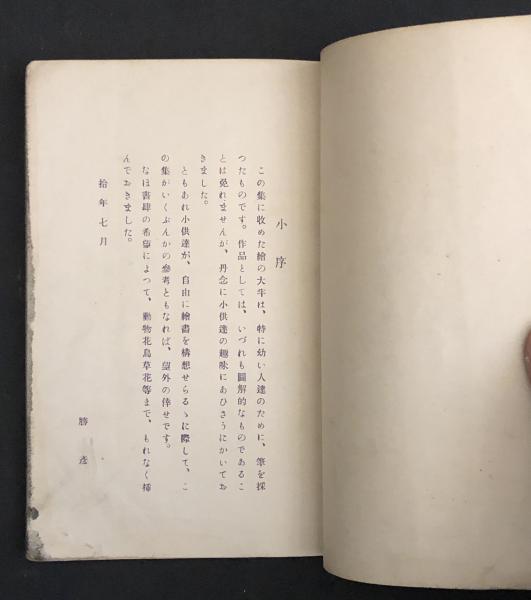 小序
この集に收めた繪の大半は、特に幼い人達のために、筆を採
つたものです。作品としては、いづれも圖解的なものであるこ
とは免れませんが、丹念に小供達の趣味にあひさうにかいてお
きました。
ともあれ小供達が、自由に繪畫を構想せらるゝに際して、こ
の集がいくぶんかの參考ともなれば、望外の倖せです。
なほ書肆の希望によつて、動物花鳥草花等まで、もれなく揷
んでおきました。
拾年七月
勝彦